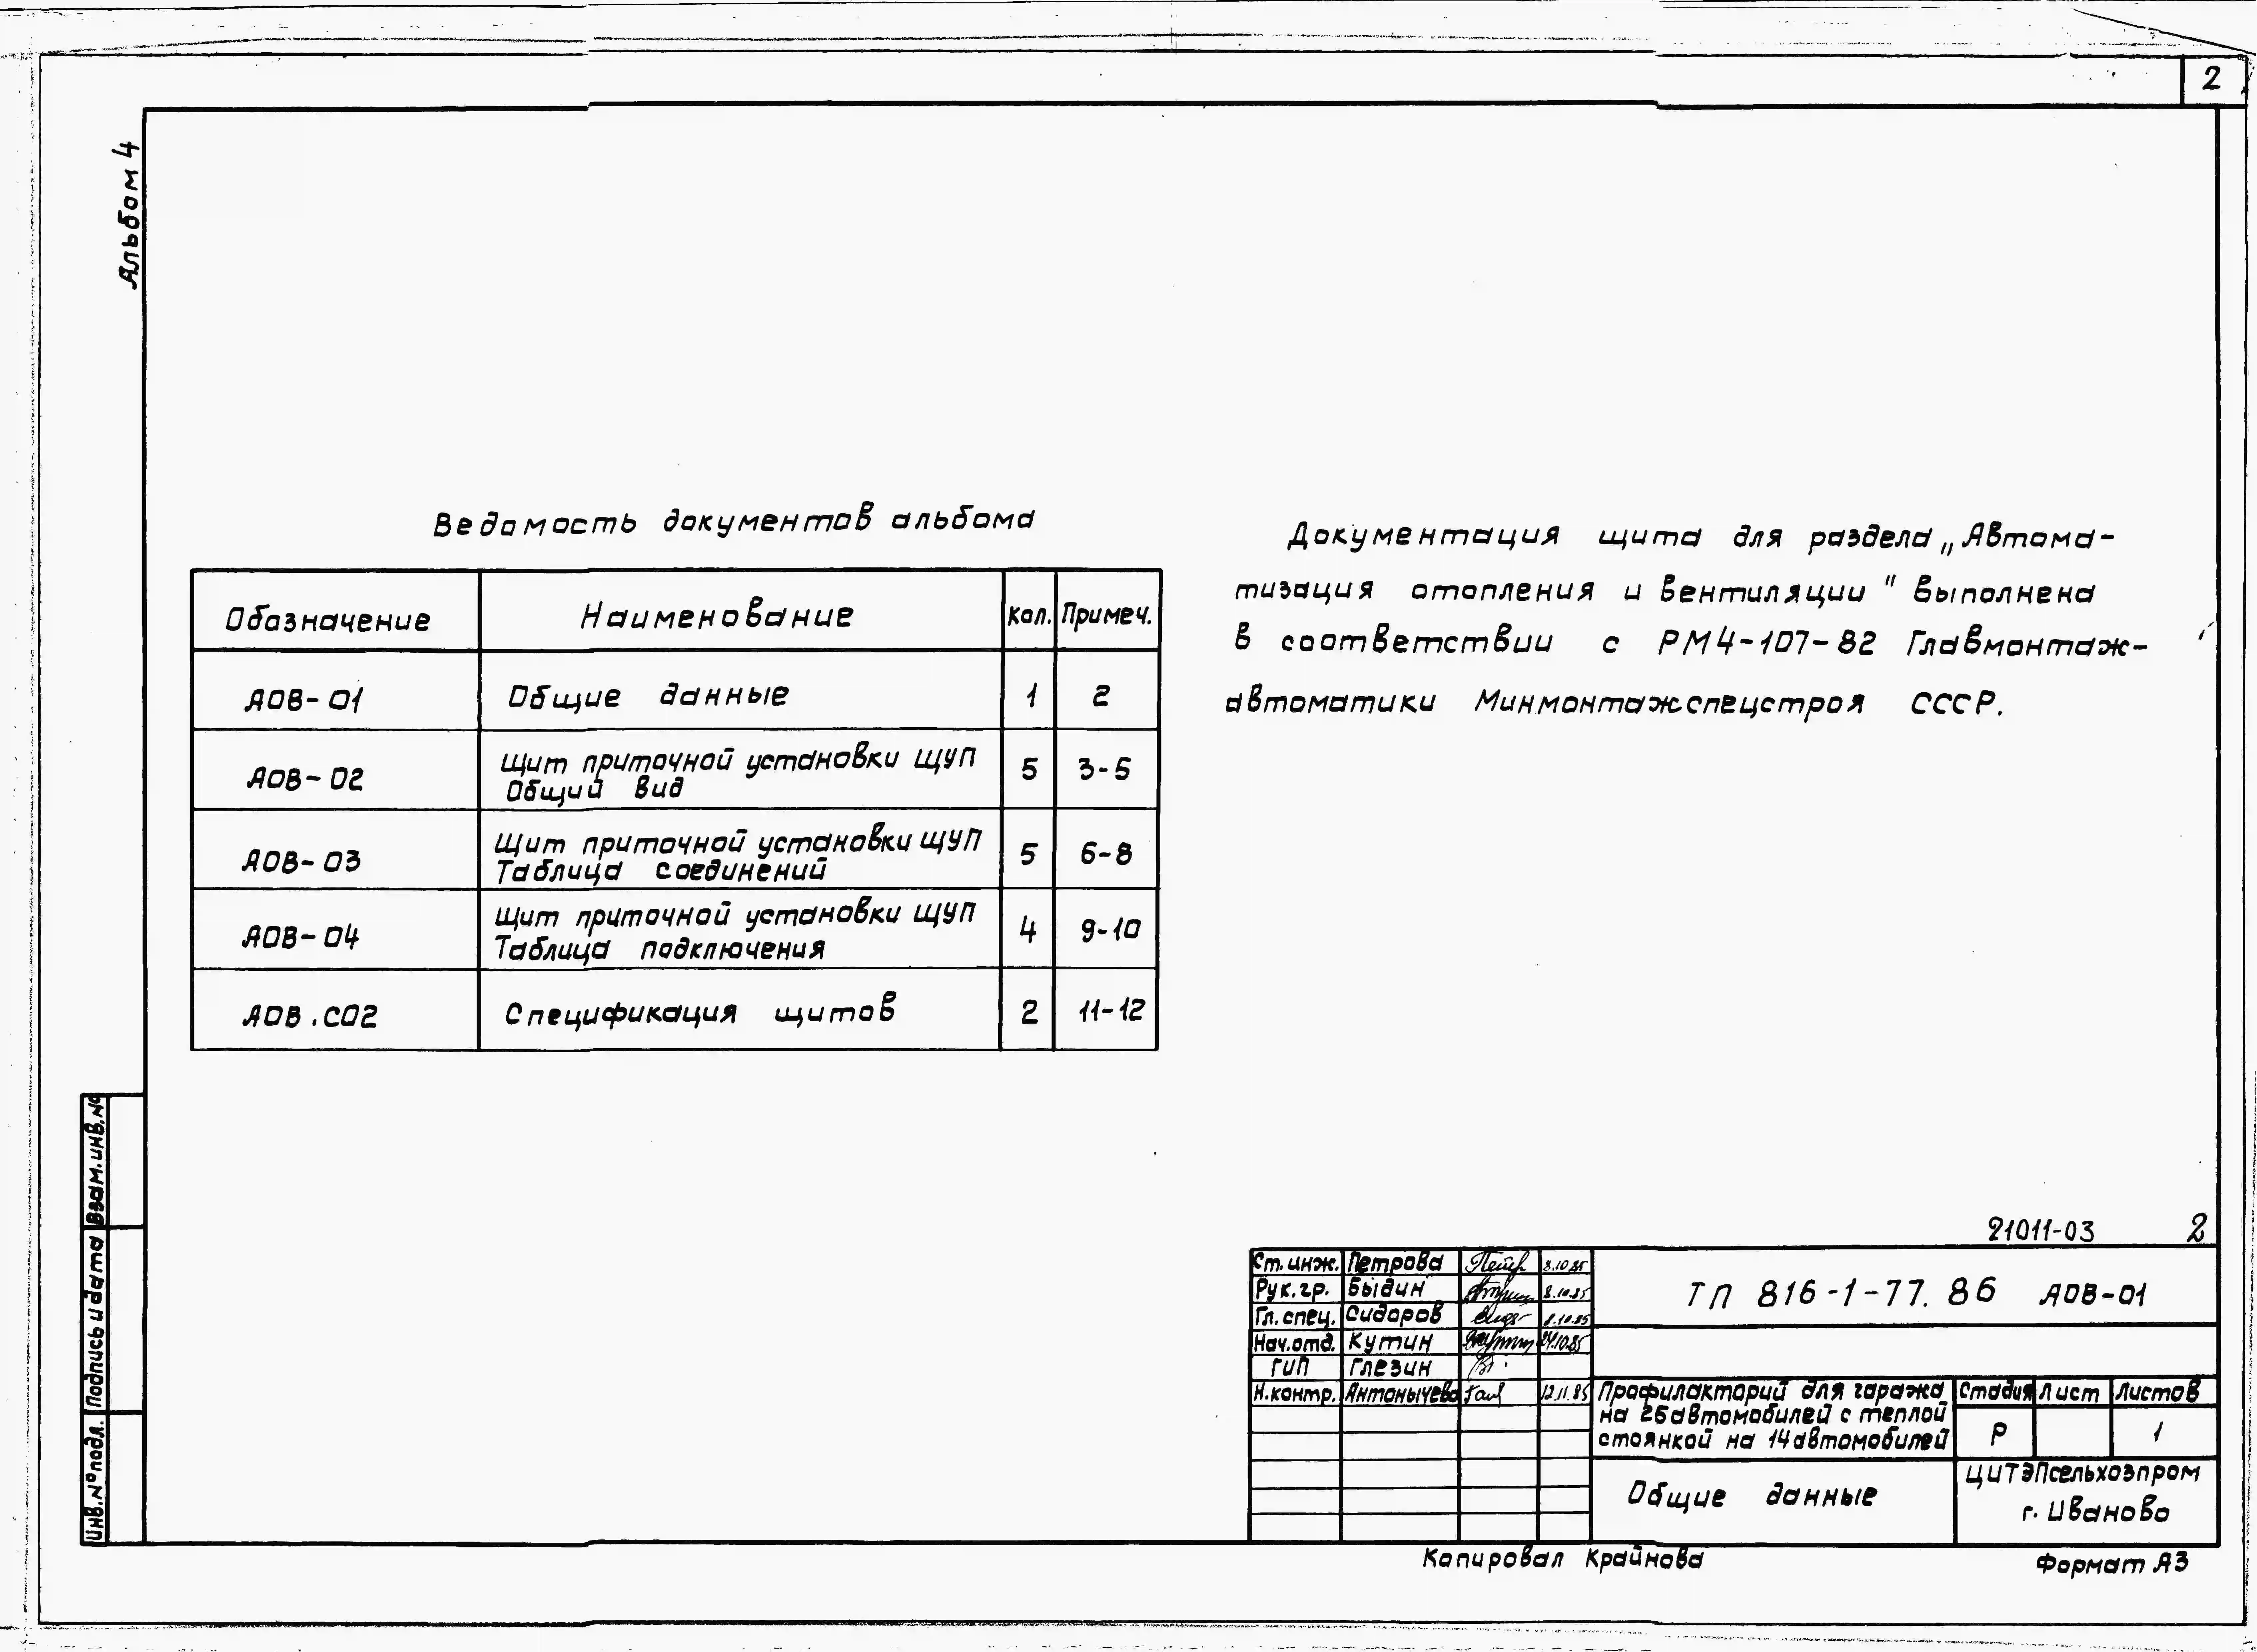 2
Альбом 4
Ведомость документов альбома
Обозначение Наименование Кол. Примеч.
АОВ-01 Общие данные 1 2
АОВ-02 Щит приточной установки ЩУП
Общий вид 5 3-5
АОВ-03 Щит приточной установки ЩУП
Таблица соединений 5 6-8
АОВ-04 Щит приточной установки ЩУП
Таблица подключения 4 9-10
АОВ.СО2 Спецификация щитов 2 11-12
Документация щита для раздела „Автома-
тизация отопления и вентиляции" выполнена
в соответствии с РМ4-107-82 Главмонтаж-
автоматики Минмонтажспецстроя СССР.
Взам.инв.№
Подпись и дата
Инв.№подл.
21011-03 2
Ст.инж. Петрова 8.10.85
Рук.гр. Быдин 8.10.85
Гл.спец. Сидоров 8.10.85
Нач.отд. Кутин 24.10.85
ГИП Глезин
Н.контр. Антонычева 12.11.85
ТП 816-1-77.86 АОВ-01
Профилакторий для гаража
на 26 автомобилей с теплой
стоянкой на 14 автомобилей
Стадия Лист Листов
Р 1
Общие данные
ЦИТЭПсельхозпром
г. Иваново
Копировал Крайнова
Формат А3